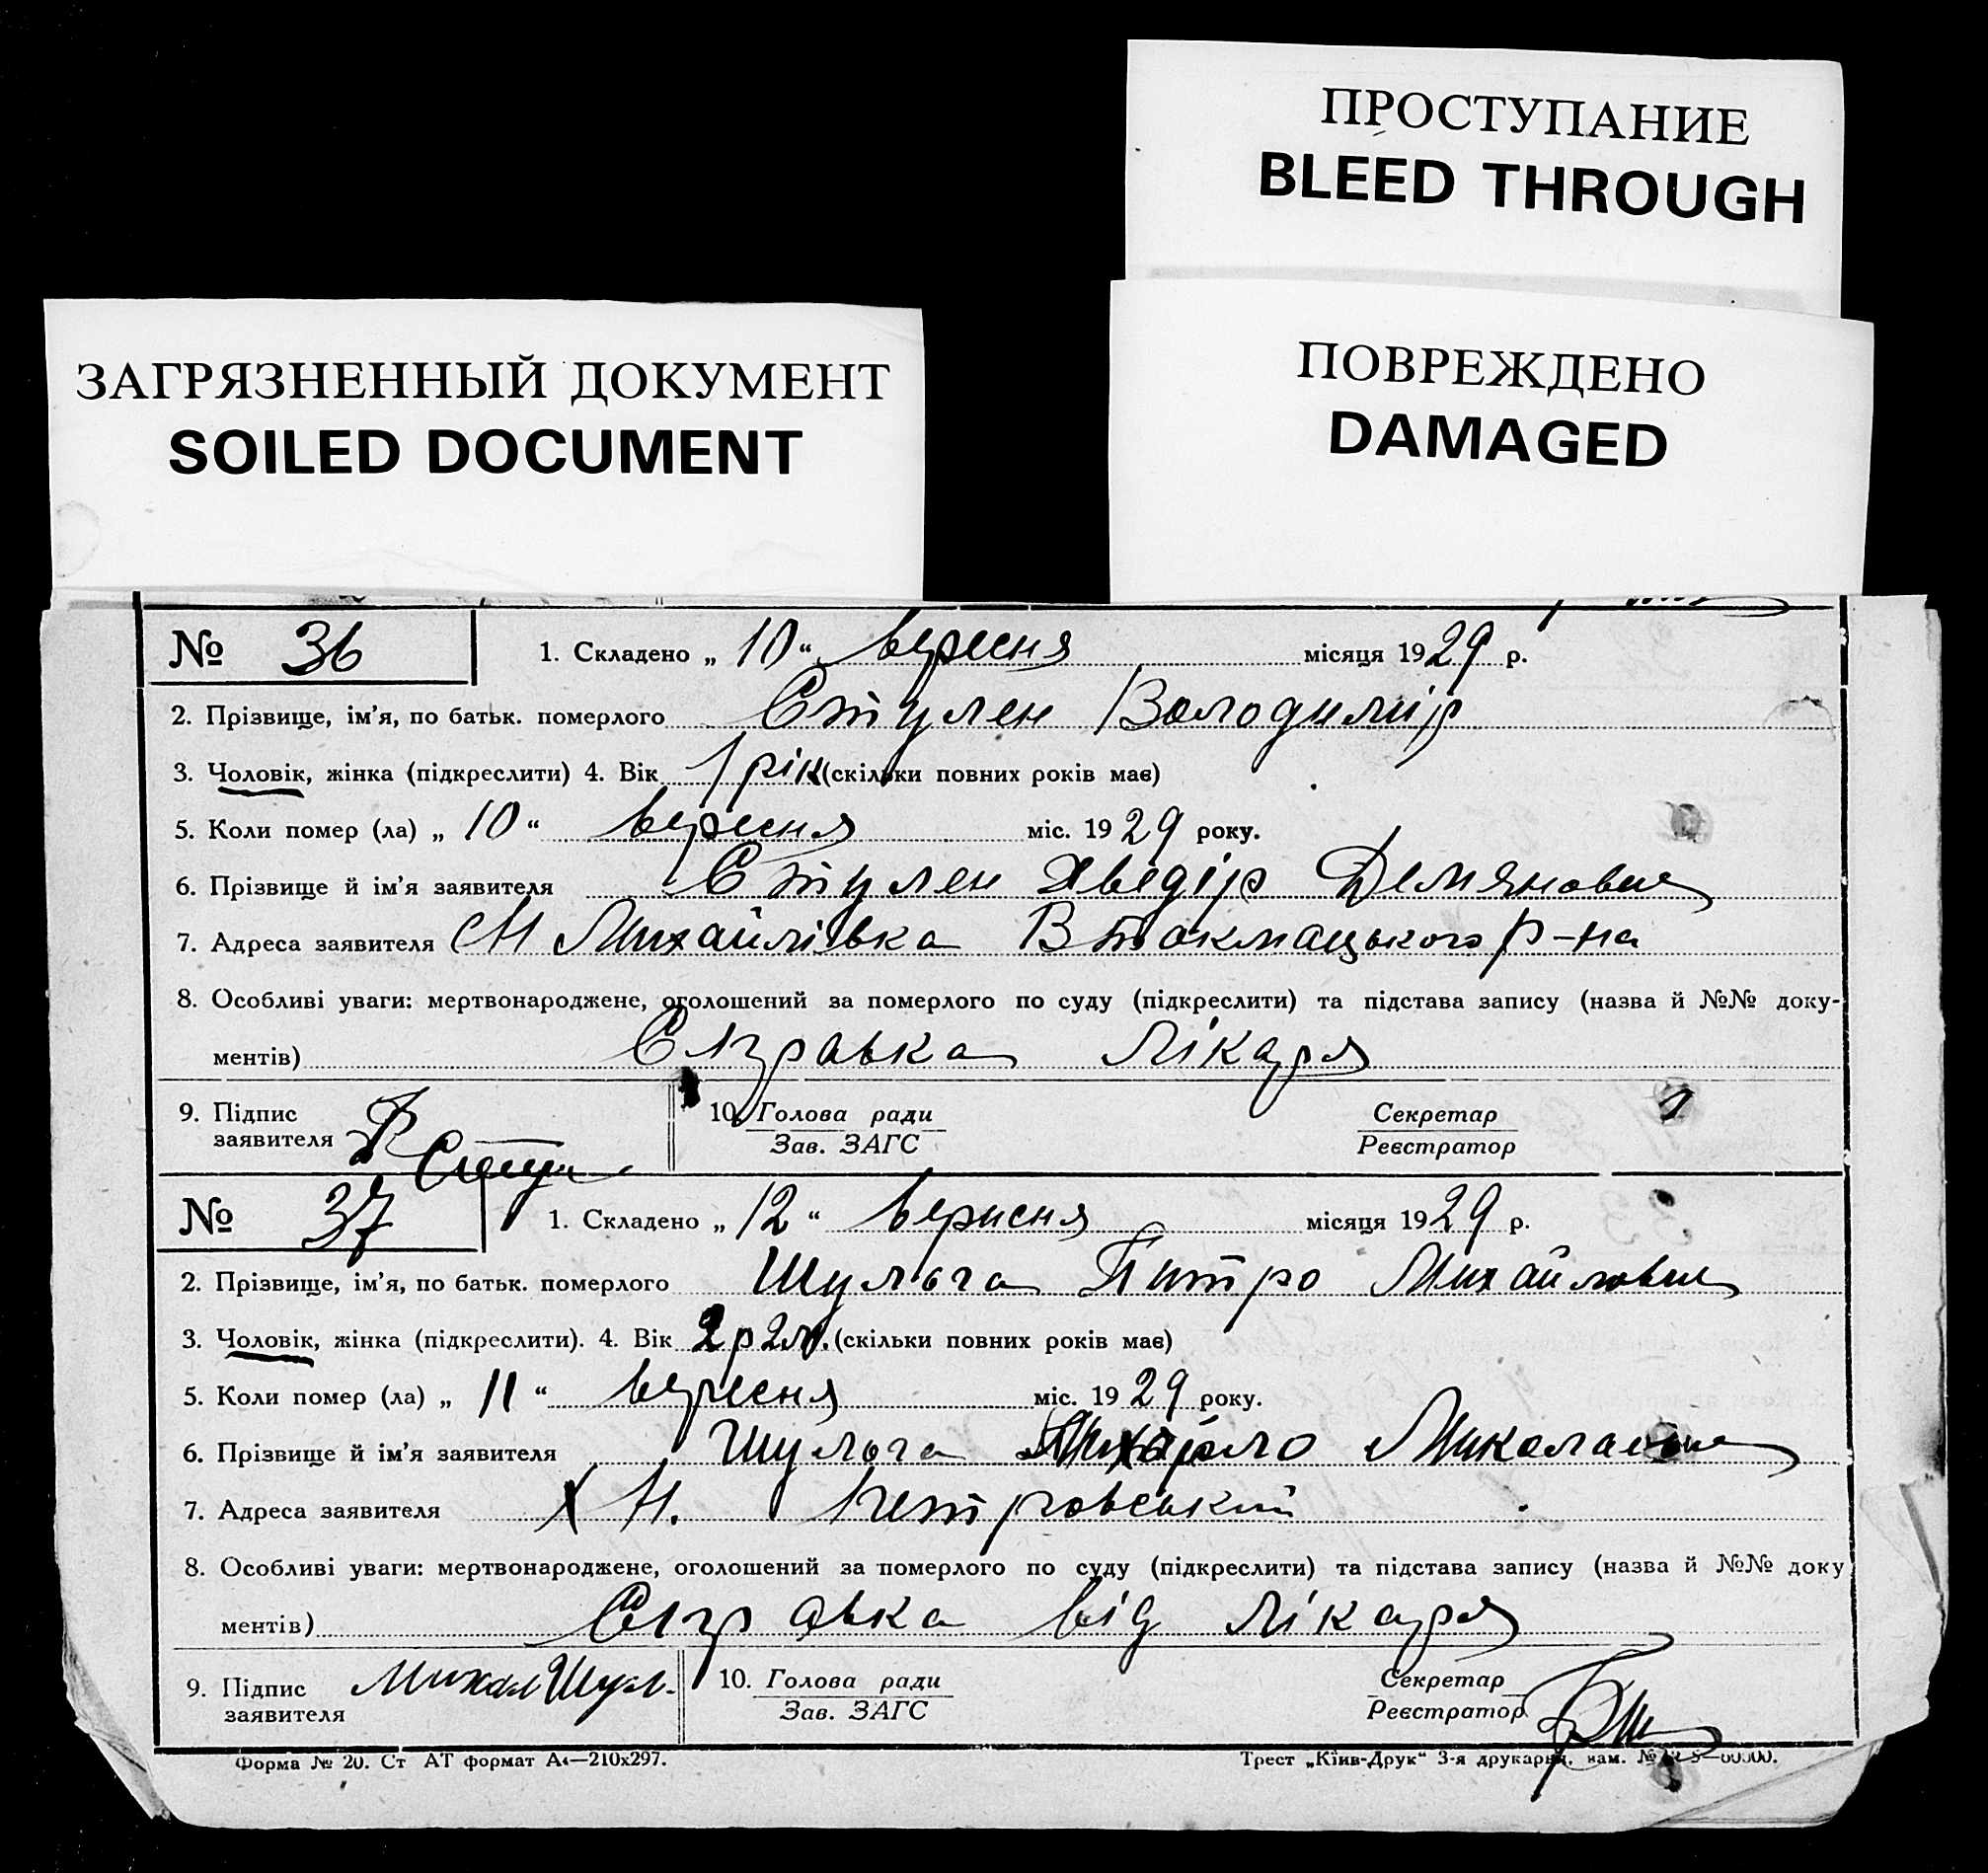 ПРОСТУПАНИЕ
BLEED THROUGH
ЗАГРЯЗНЕННЫЙ ДОКУМЕНТ
SOILED DOCUMENT
ПОВРЕЖДЕНО
DAMAGED
№ 36 1. Складено „ 10 “ вересня місяця 1929 р.
2. Прізвище, ім'я, по батьк. померлого Стулен Володимир
3. Чоловік, жінка (підкреслити) 4. Вік 1 рік (скільки повних років має)
5. Коли помер (ла) „ 10 “ вересня міс. 1929 року.
6. Прізвище й ім'я заявителя Стулен Хведір Демянович
7. Адреса заявителя Н Михайлівка В Токмацького р-на
8. Особливі уваги: мертвонароджене, оголошений за померлого по суду (підкреслити) та підстава запису (назва й №№ доку-
ментів) Справка лікаря
9. Підпис заявителя 10. Голова ради Секретар
Зав. ЗАГС Реєстратор
№ 37 1. Складено „ 12 “ вересня місяця 1929 р.
2. Прізвище, ім'я, по батьк. померлого Шульга Питро Михайлович
3. Чоловік, жінка (підкреслити). 4. Вік 2 р 2 м. (скільки повних років має)
5. Коли помер (ла) „ 11 “ вересня міс. 1929 року.
6. Прізвище й ім'я заявителя Шульга Михайло Миколаович
7. Адреса заявителя Х Н. Петровський
8. Особливі уваги: мертвонароджене, оголошений за померлого по суду (підкреслити) та підстава запису (назва й №№ доку
ментів) Справка від лікаря
9. Підпис заявителя Михал Шул. 10. Голова ради Секретар
Зав. ЗАГС Реєстратор
Форма № 20. Ст АТ формат А4—210х297. Трест „Київ-Друк“ 3-я друкарня, зам. №